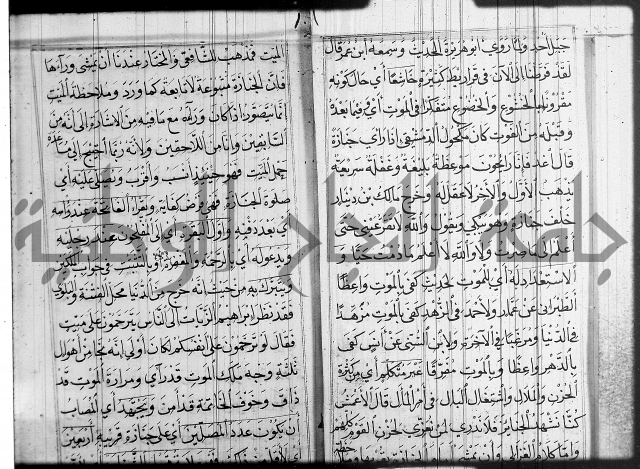 جبل أحد ولما روى أبو هريرة الحديث وسمعه ابن عمر قال
لقد فرطنا إلى الآن في قراريط كثيرة خاشعا أي حال كونه
مقرونا بالخشوع والخضوع متفكرا في الموت أي وفيما بعده
وقبله من الفوت كان مكحول الدمشقي إذا رأى جنازة
قال اغد فإنا رائحون موعظة بليغة وغفلة سريعة
يذهب الأول والآخر لا عقل له وخرج مالك بن دينار
خلف جنازة وهو يبكي ويقول والله لا تقر عيني حتى
أعلم إلى ما صرت ولا والله لا أعلم ما دمت حيا و
أي للموت لحديث كفى بالموت واعظا
الطبراني عن عمار ولأحمد في الزهد كفى بالموت مزهدا
في الدنيا ومرغبا في الآخرة ولابن السني عن أنس كفى
بالدهر واعظا وبالموت مفرقا غير متكلم أي من كثرة
الحزن والملال واشتغال البال في أمر المآل قال الأعمش
كنا نشهد الجنائز فلا ندري لمن نعزي لحزن القوم كلهم
الميت مذهب للشافعي والمختار عندنا أن يمشي وراءها
فإن الجنازة متبوعة لا تابعة كما ورد وملاحظة الميت
إنما يتصور إذا كان وراءه مع ما فيه من الإشارة إلى أنه من
السابقين وإنا من اللاحقين ولأنه ربما احتيج إلى
حمل الميت فهو حينئذ أنسب وأقرب ويصلي عليه أي
صلوة الجنازة فهي فرض كفاية ويقرأ الفاتحة عند
أي بعد دفنه وأول البقرة أي إلى المفلحون عند رجليه
ويدعو له أي بالرحمة والمغفرة أو بالتثبت في جواب الملكين
ويتبرك به من حيث إنه خرج من الدنيا محل الفتنة والبلوى
فقد نظر إبراهيم الزيات إلى أناس يترحمون على ميت
فقال لو ترحمون على أنفسكم لكان أولى إنه نجا من أهوال
ثلثة وجه ملك الموت قد رأى ومرارة الموت قد
ذاق وخوف الخاتمة قد أمن ويجتهد أي المصاب
أن يكون عدد المصلين أي على جنازة قريبه أربعين
جامعة النجاح الوطنية